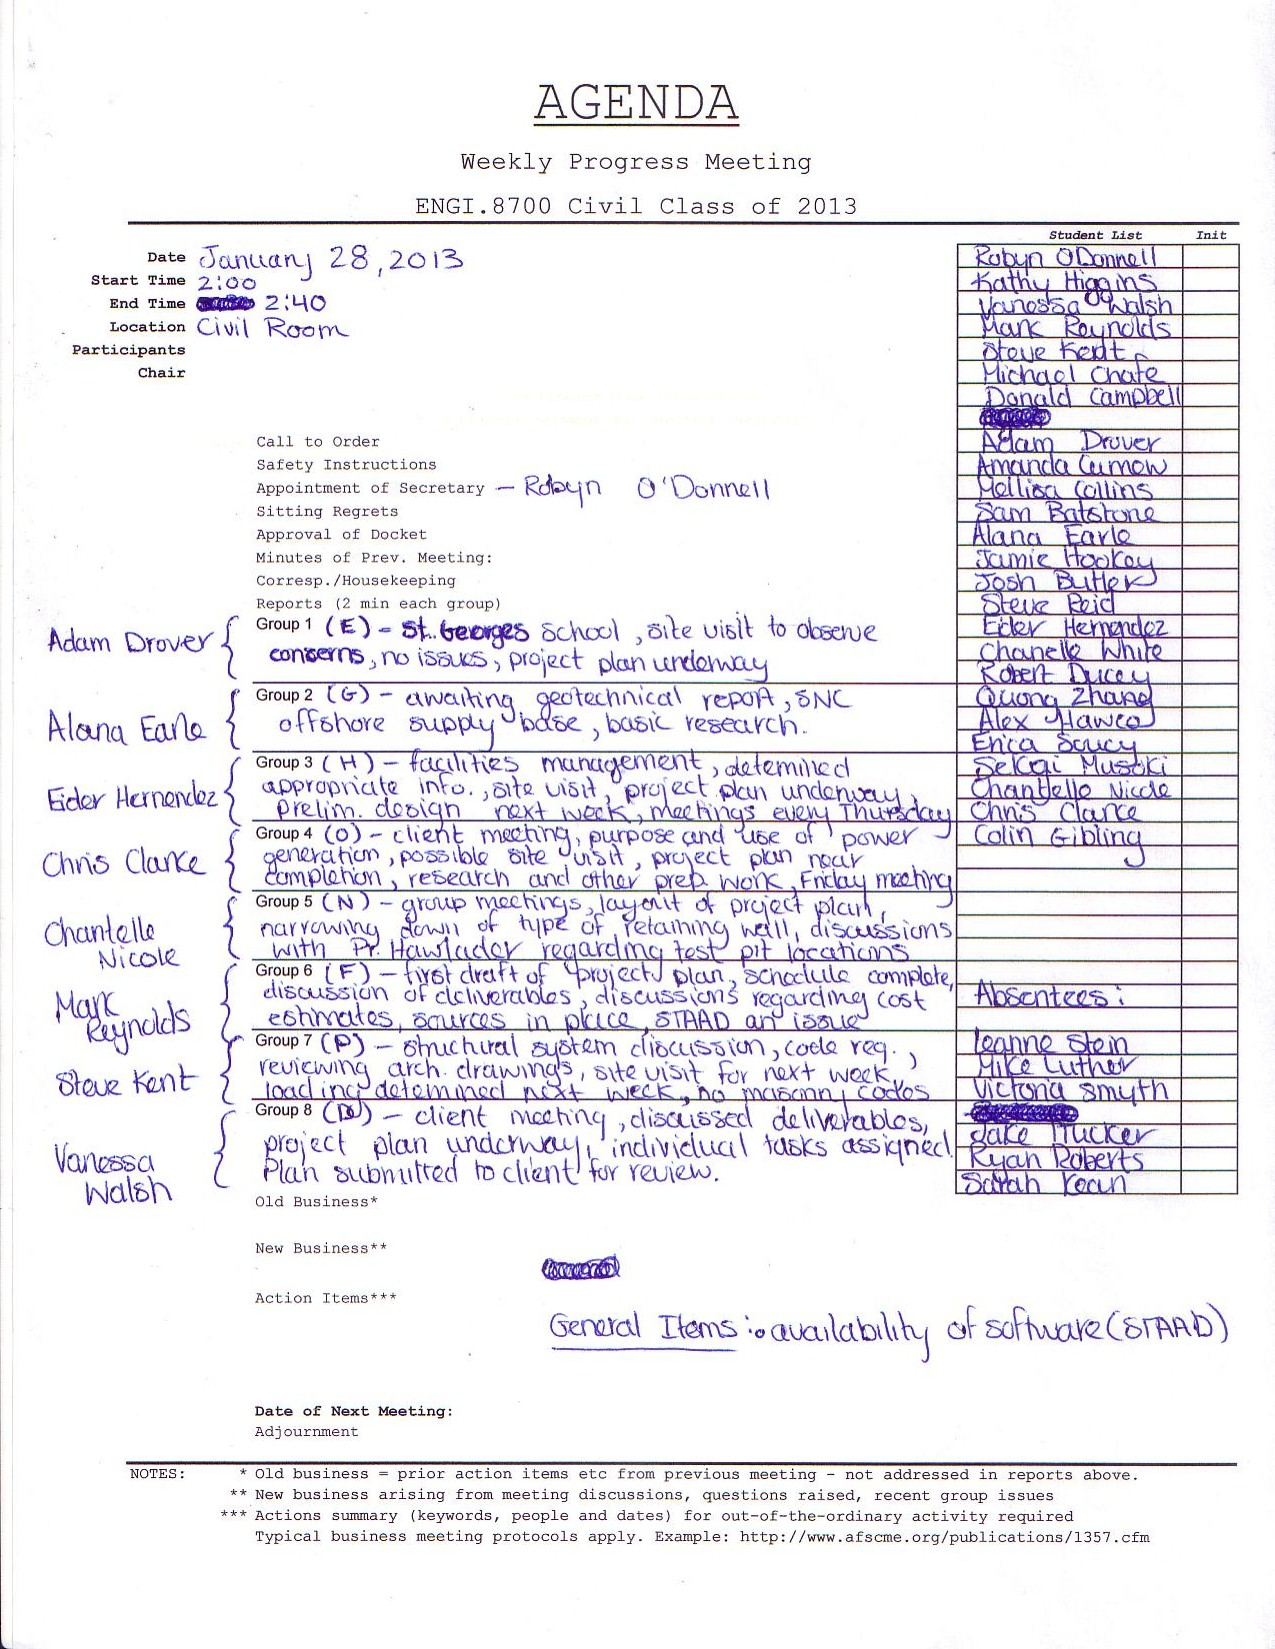 AGENDA
Weekly Progress Meeting
ENGI.8700 Civil Class of 2013
Student List Init
Date January 28, 2013
Start Time 2:00
End Time 2:40
Location Civil Room
Participants
Chair
Robyn O'Donnell
Kathy Higgins
Vanessa Walsh
Mark Reynolds
Steve Kent
Michael Chafe
Donald Campbell
Adam Drover
Amanda Curnow
Mellisa Collins
Sam Batstone
Alana Earle
Jamie Hookey
Josh Butler
Steve Reid
Eider Hernendez
Chanelle White
Robert Ducey
Quong Zhang
Alex Hawco
Erica Soucy
Sekai Musoki
Chantelle Nicole
Chris Clarke
Colin Gibling
Absentees:
Leanne Stein
Mike Luther
Victoria Smyth
Jake Tucker
Ryan Roberts
Sarah Kean
Call to Order
Safety Instructions
Appointment of Secretary – Robyn O'Donnell
Sitting Regrets
Approval of Docket
Minutes of Prev. Meeting:
Corresp./Housekeeping
Reports (2 min each group)
Adam Drover
Group 1 (E) – St. Georges School, site visit to observe
concerns, no issues, project plan underway
Alana Earle
Group 2 (G) – awaiting geotechnical report, SNC
offshore supply base, basic research.
Eider Hernendez
Group 3 (H) – facilities management, determined
appropriate info., site visit, project plan underway,
prelim. design next week, meetings every Thursday
Chris Clarke
Group 4 (O) – client meeting, purpose and use of power
generation, possible site visit, project plan near
completion, research and other prep work, Friday meeting
Chantelle
Nicole
Group 5 (N) – group meetings, layout of project plan,
narrowing down of type of retaining wall, discussions
with Pr. Hawlader regarding test pit locations
Mark
Reynolds
Group 6 (F) – first draft of project plan, schedule complete,
discussion of deliverables, discussions regarding cost
estimates, sources in place, STAAD an issue
Steve Kent
Group 7 (P) – structural system discussion, code req.,
reviewing arch. drawings, site visit for next week,
loading determined next week, no masonry codes
Vanessa
Walsh
Group 8 (D) – client meeting, discussed deliverables,
project plan underway, individual tasks assigned.
Plan submitted to client for review.
Old Business*
New Business**
Action Items***
General Items: availability of software (STAAD)
Date of Next Meeting:
Adjournment
NOTES: * Old business = prior action items etc from previous meeting – not addressed in reports above.
** New business arising from meeting discussions, questions raised, recent group issues
*** Actions summary (keywords, people and dates) for out-of-the-ordinary activity required
Typical business meeting protocols apply. Example: http://www.afscme.org/publications/1357.cfm